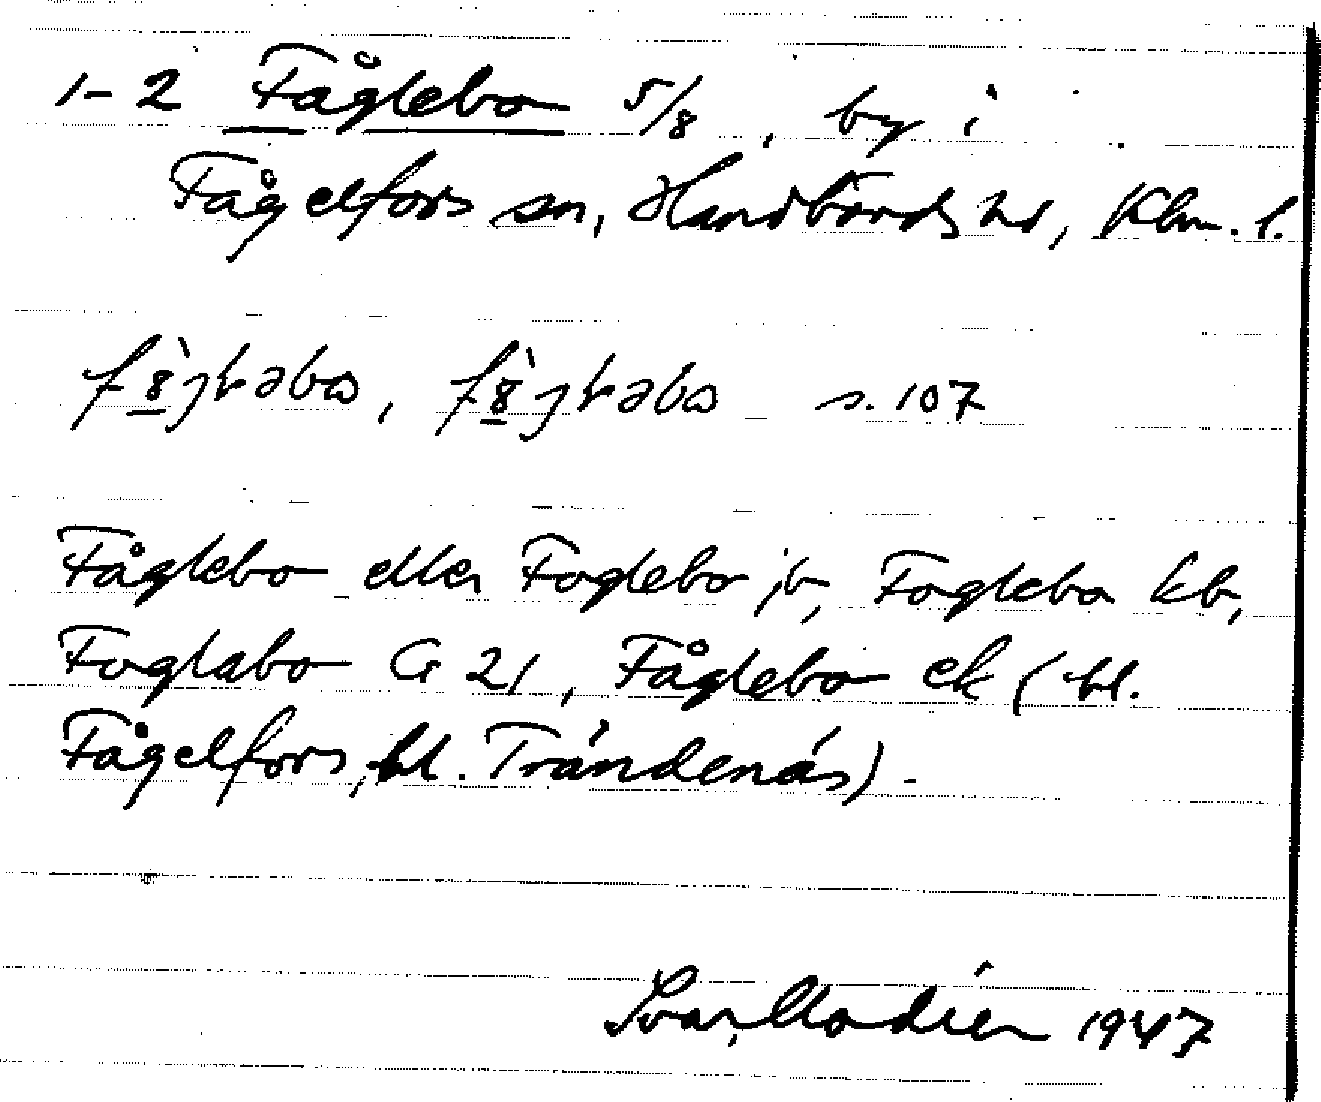 1-2 Fåglebo 5/8, by i
Fågelfors sn, Handbörds hd, Klm. l.
s. 107
Fåglebo eller Foglebo jb, Foglebo kb,
Foglabo G 21, Fåglebo ek (bl.
Fågelfors, bl. Trändenäs).
Ivar Modéer 1947